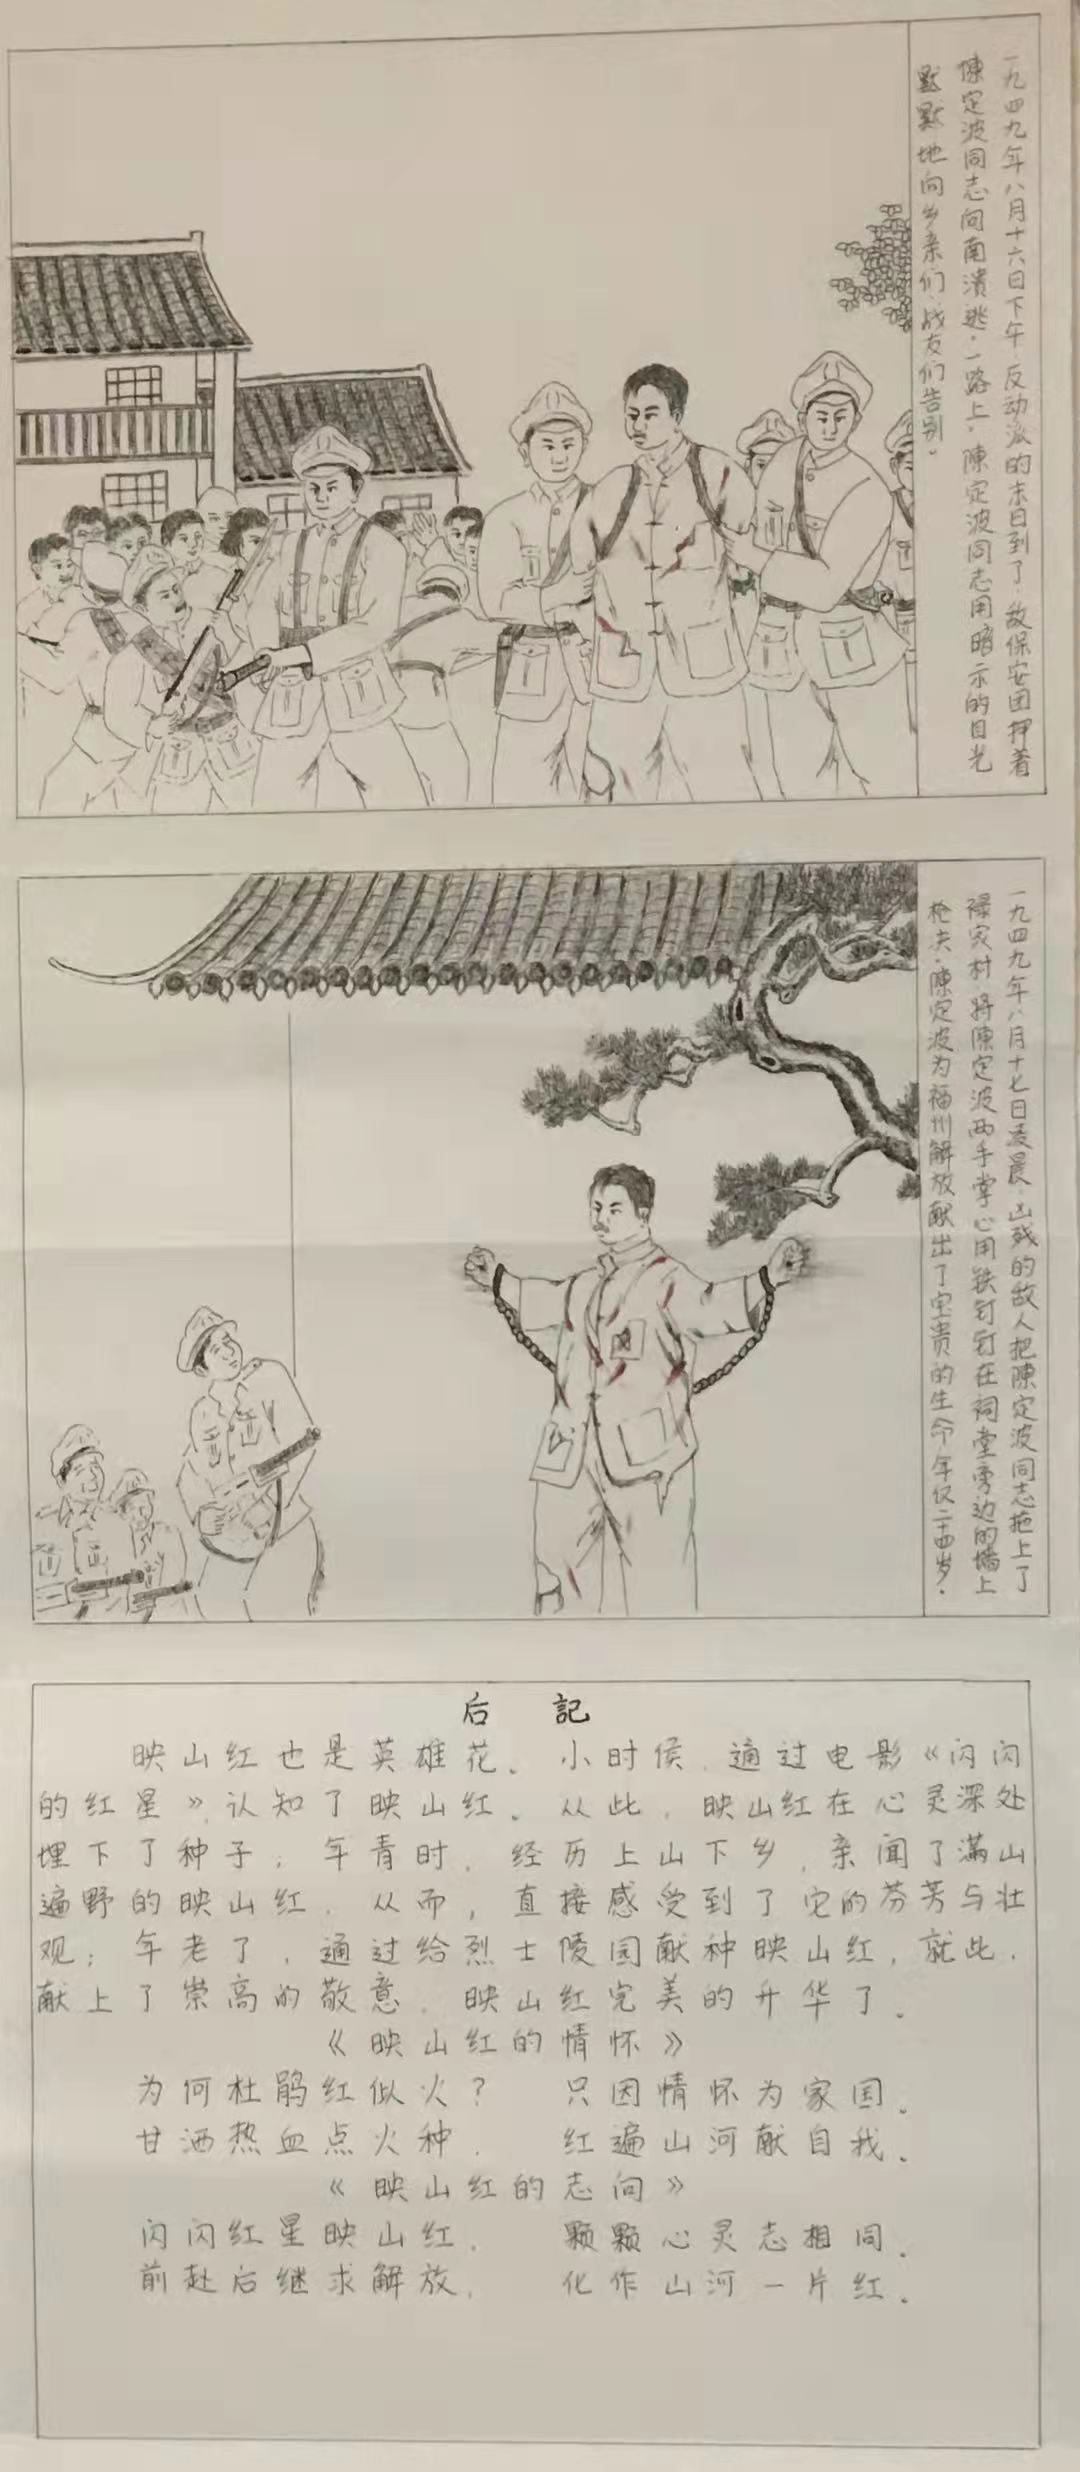 一九四九年八月十六日下午,反动派的末日到了,敌保安团押着
陳定波同志向南溃逃,一路上,陳定波同志用暗示的目光
默默地向乡亲们、战友们告别。
一九四九年八月十七日凌晨,凶残的敌人把陳定波同志拖上了
村,将陳定波两手掌心用铁钉钉在祠堂旁边的墙上
枪夫,陳定波为福州解放献出了宝贵的生命,年仅二十四岁。
后 記
映山红也是英雄花。小时侯,通过电影《闪闪
的红星》,认知了映山红。从此,映山红在心灵深处
埋下了种子;年青时,经历上山下乡,亲闻了满山
遍野的映山红,从而,直接感受到了它的芬芳与壮
观;年老了,通过给烈士陵园献种映山红,就此,
献上了崇高的敬意,映山红完美的升华了。
《映山红的情怀》
为何杜鹃红似火? 只因情怀为家国。
甘洒热血点火种, 红遍山河献自我。
《映山红的志向》
闪闪红星映山红, 颗颗心灵志相同。
前赴后继求解放, 化作山河一片红。